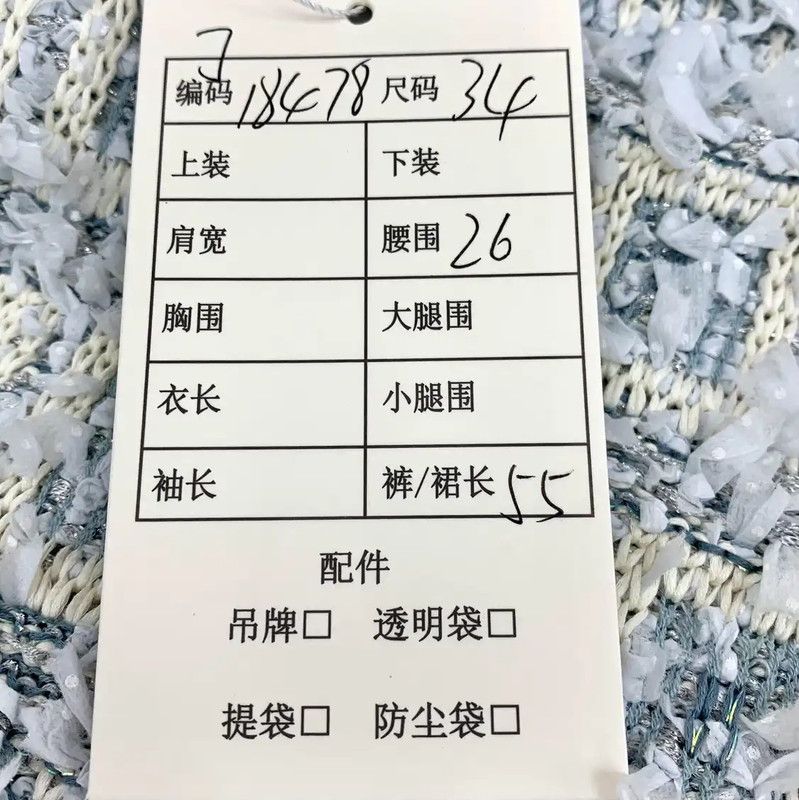 编码 18478 尺码 34
上装 下装
肩宽 腰围 26
胸围 大腿围
衣长 小腿围
袖长 裤/裙长 55
配件
吊牌□ 透明袋□
提袋□ 防尘袋□